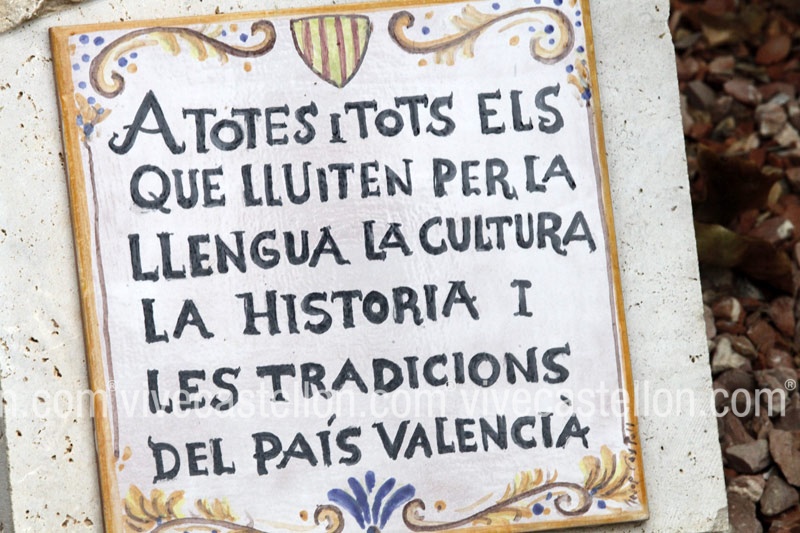 A TOTES I TOTS ELS
QUE LLUITEN PER LA
LLENGUA LA CULTURA
LA HISTORIA I
LES TRADICIONS
n.com vivecastellon.com vivecastellon.com®
DEL PAÍS VALENCIÀ